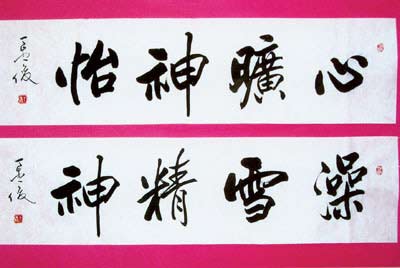 心曠神怡
澡雪精神